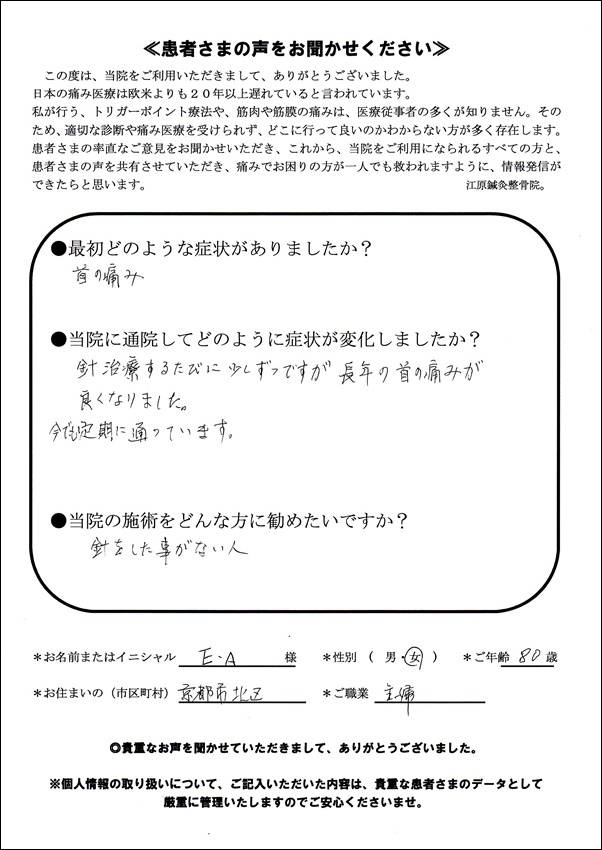 ≪患者さまの声をお聞かせください≫
この度は、当院をご利用いただきまして、ありがとうございました。
日本の痛み医療は欧米よりも20年以上遅れていると言われています。
私が行う、トリガーポイント療法や、筋肉や筋膜の痛みは、医療従事者の多くが知りません。その
ため、適切な診断や痛み医療を受けられず、どこに行って良いのかわからない方が多く存在します。
患者さまの率直なご意見をお聞かせいただき、これから、当院をご利用になられるすべての方と、
患者さまの声を共有させていただき、痛みでお困りの方が一人でも救われますように、情報発信が
できたらと思います。 江原鍼灸整骨院。
●最初どのような症状がありましたか？
首の痛み
●当院に通院してどのように症状が変化しましたか？
針治療するたびに少しずつですが長年の首の痛みが
良くなりました。
今でも定期に通っています。
●当院の施術をどんな方に勧めたいですか？
針をした事がない人
＊お名前またはイニシャル E・A 様 ＊性別（ 男・女 ） ＊ご年齢 80 歳
＊お住まいの（市区町村）京都市北区 ＊ご職業 主婦
◎貴重なお声を聞かせていただきまして、ありがとうございました。
※個人情報の取り扱いについて、ご記入いただいた内容は、貴重な患者さまのデータとして
厳重に管理いたしますのでご安心くださいませ。